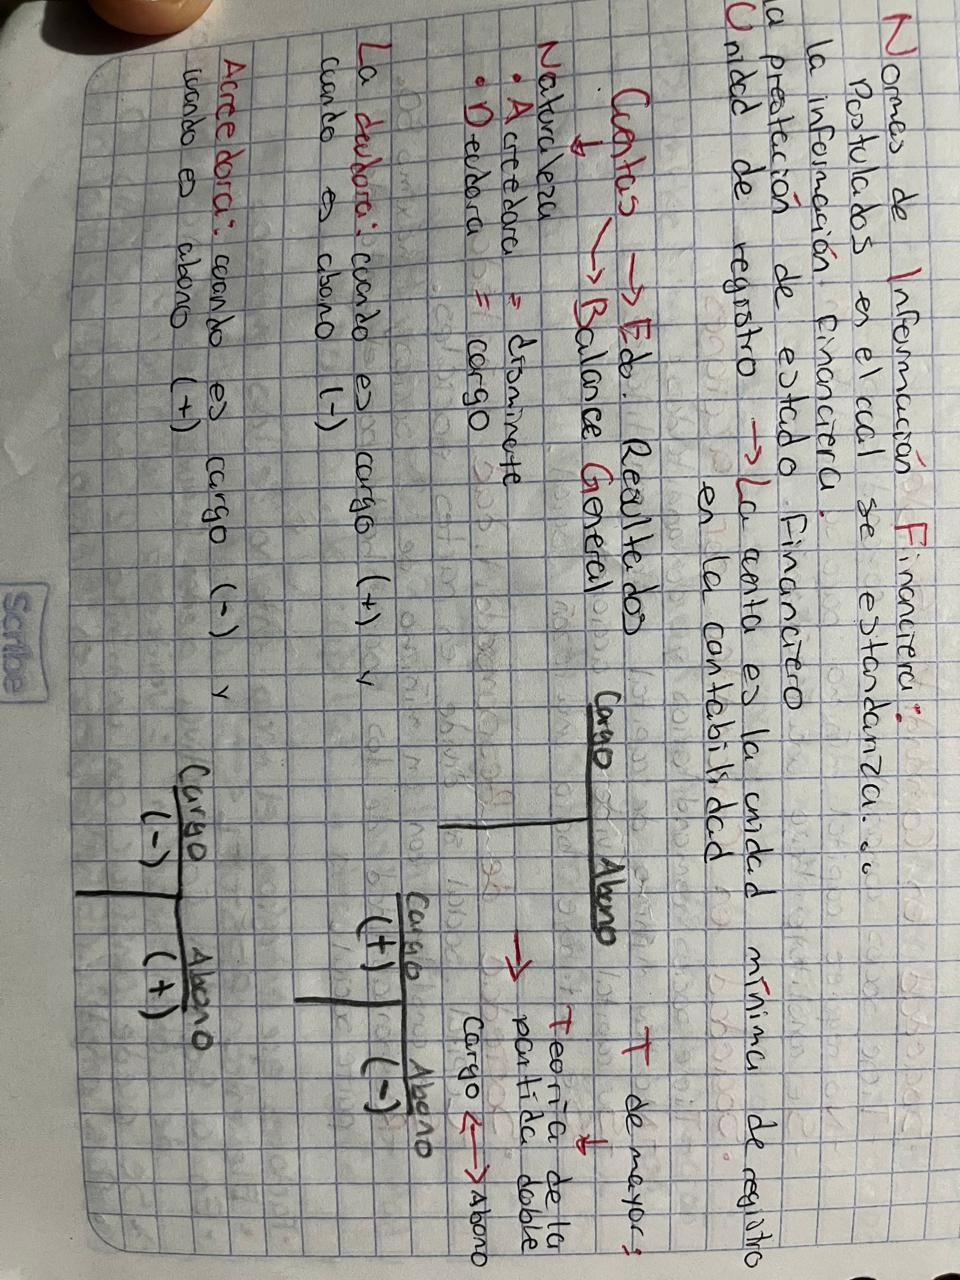 Normas de Información Financiera:
Postulados en el cual se estandariza
la información financiera.
la prestación de estado financiero
Unidad de registro → La centa es la unidad mínima de registro
en la contabilidad
Cuentas → Edo. Resultados
→ Balance General
T de mayor:
Cargo Abono
Naturaleza
• Acreedora = disminute
• Deudora = cargo
→ Teoría de la
partida doble
Cargo ↔ Abono
La deudora: cuando es cargo (+) y
cuando es abono (-)
Cargo Abono
(+) (-)
Acreedora: cuando es cargo (-) y
cuando es abono (+)
Cargo Abono
(-) (+)
Scribe